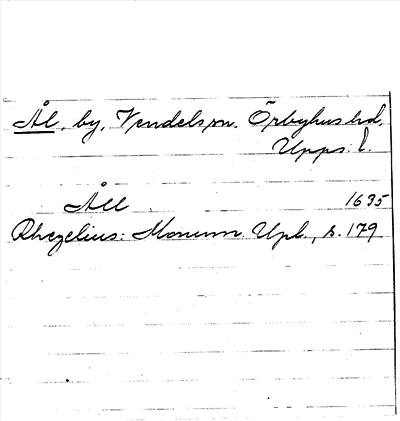 Ål, by, Vendels sn. Örbyhus hd.
Upps. l.
Åll 1635
Rhezelius: Monum. Upl., s. 179